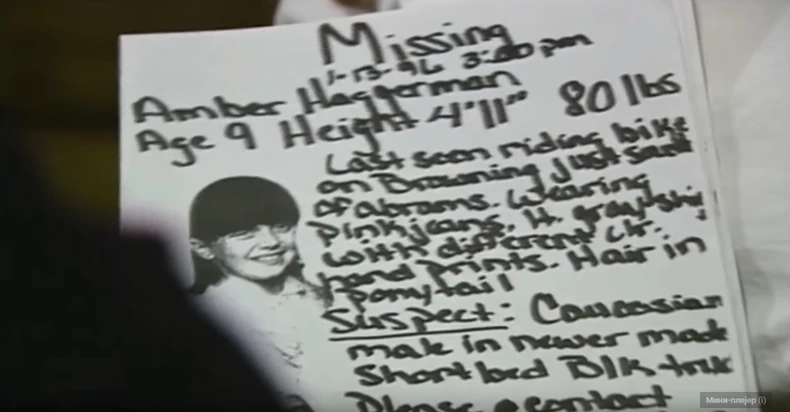 Missing
1-13-96 3:00 pm
Amber Haggerman
Age 9 Height 4'11" 80 lbs
Last seen riding bike
on Browning Just
of abrams. Wearing
pink jeans, lt. gray
with different clr.
hand prints. Hair in
ponytail
Suspect: Caucasian
male in newer model
Short bed Blk truk
Please contact
Мини-плејер (i)